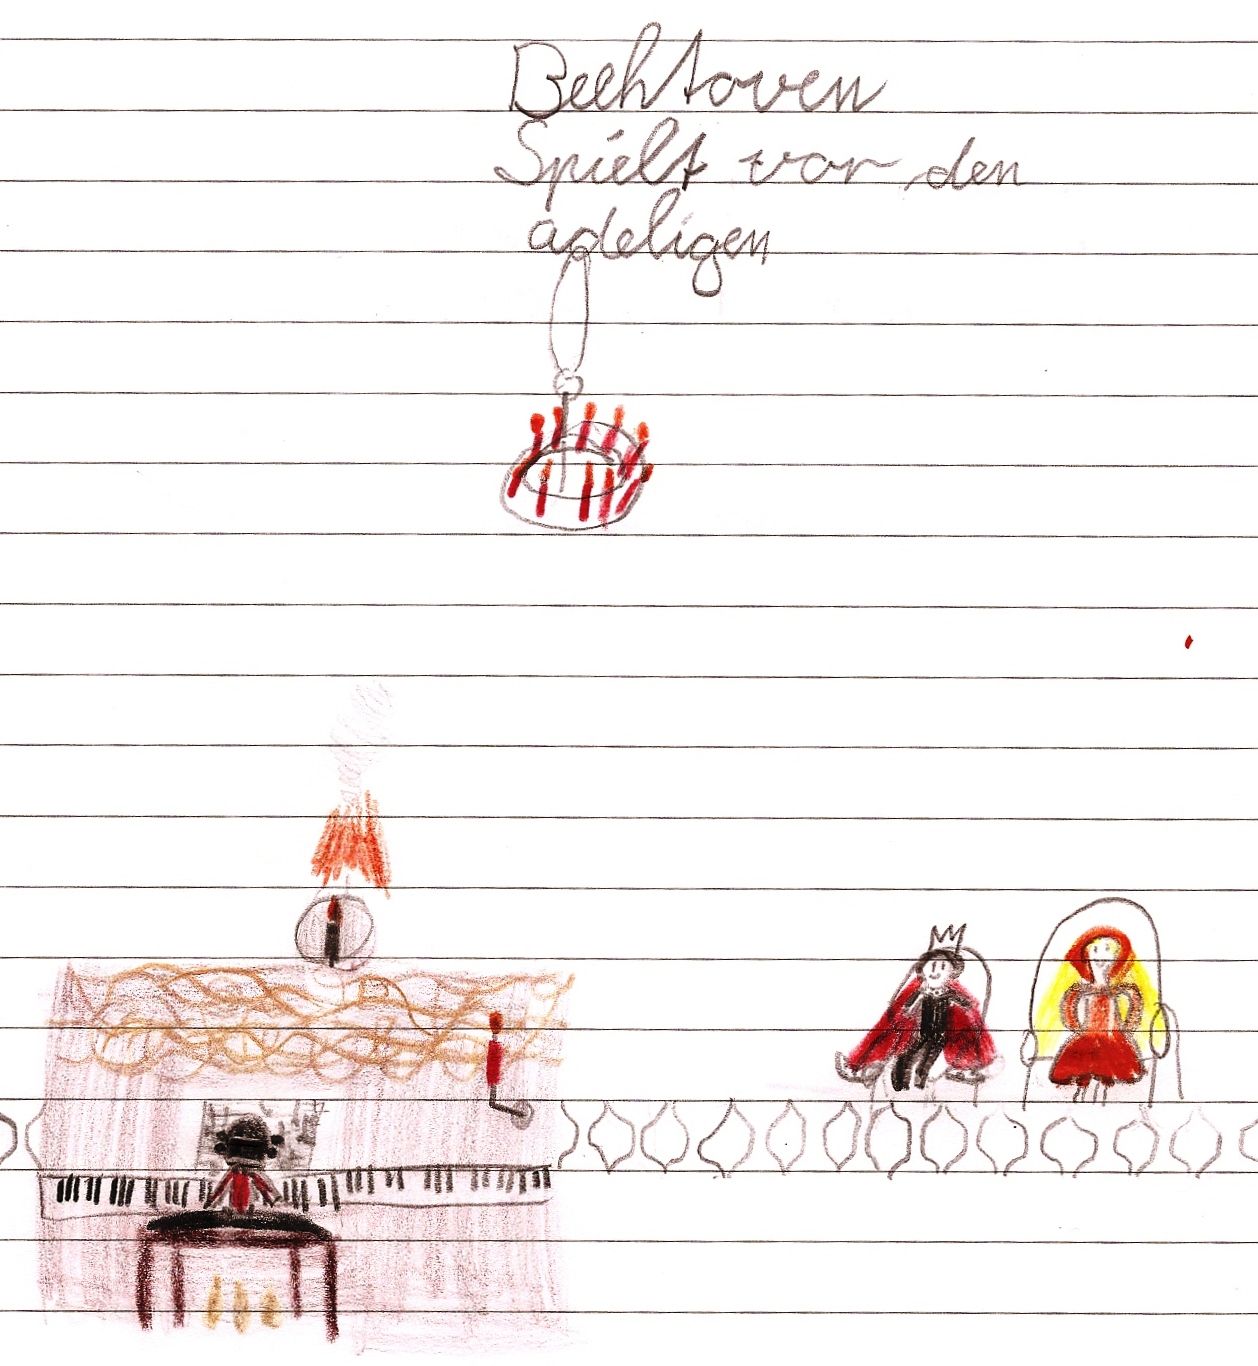 Beehtoven
Spielt vor den
adeligen